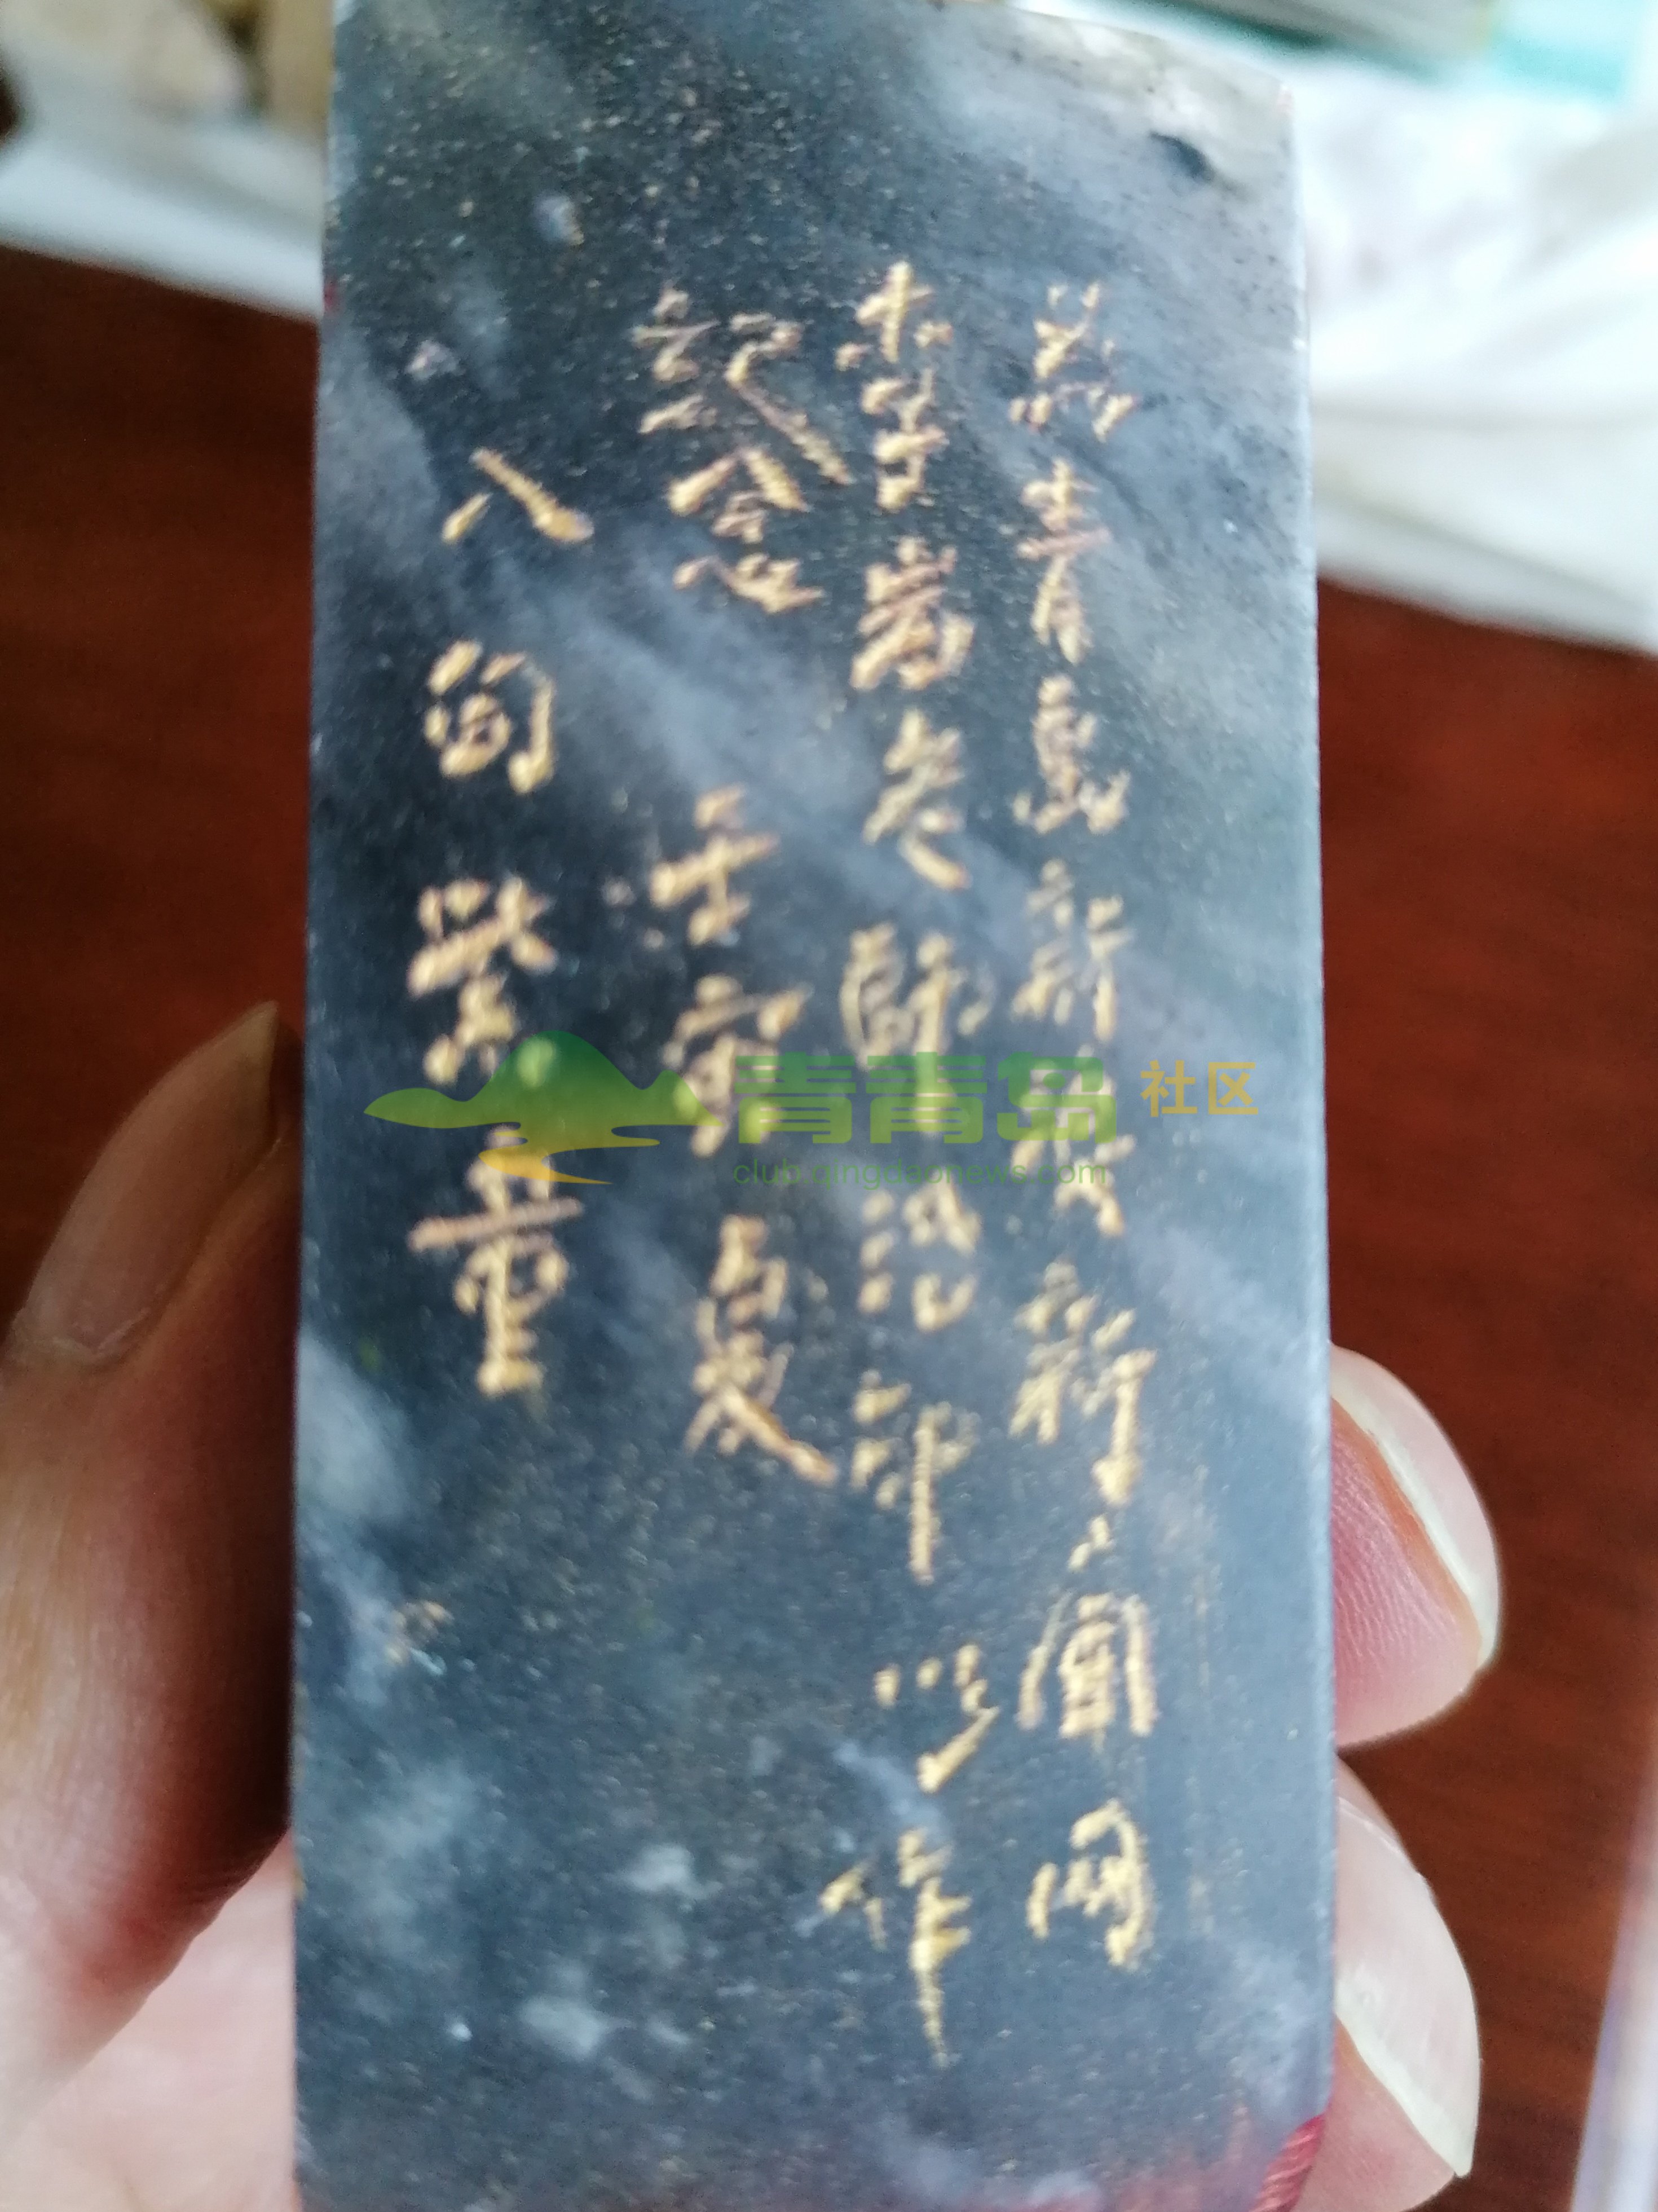 青島新聞網
李岩老師治印以作
記念
壬寅夏
八旬紫童
青青岛 社区
club.qingdaonews.com